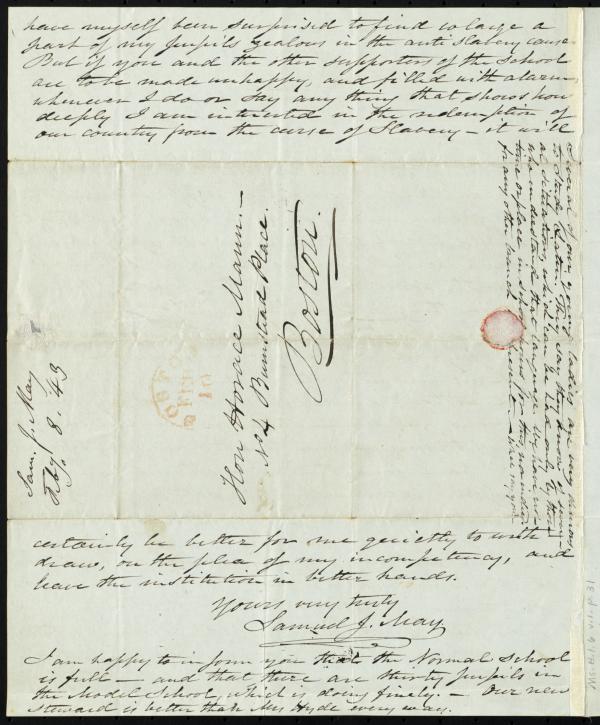 have myself been surprised to find so large a
part of my pupils zealous in the anti slavery cause.
But if you and the other supporters of the School
are to be made unhappy, and filled with alarm,
whenever I do or say any thing that shows how
deeply I am interested in the redemption of
our country from the curse of Slavery — it will
certainly be better for me quietly to with-
draw, on the plea of my incompetency, and
leave the institution in better hands.
Yours very truly
Samuel J. May
I am happy to inform you that the Normal School
is full — and that there are thirty pupils in
the Model School, which is doing finely. — Our new
Steward is better than Mrs Hyde every way.
Several of our young ladies are very
to study Latin. They say they know of sever-
al situations which
who understand that language.
time or place in school
for any other branch
Hon Horace Mann. —
No 4 Bumstead Place.
Boston.
FEB
10
Sam. J. May
Feby. 8. '43
Ms. B.1.6 v.1, p.31